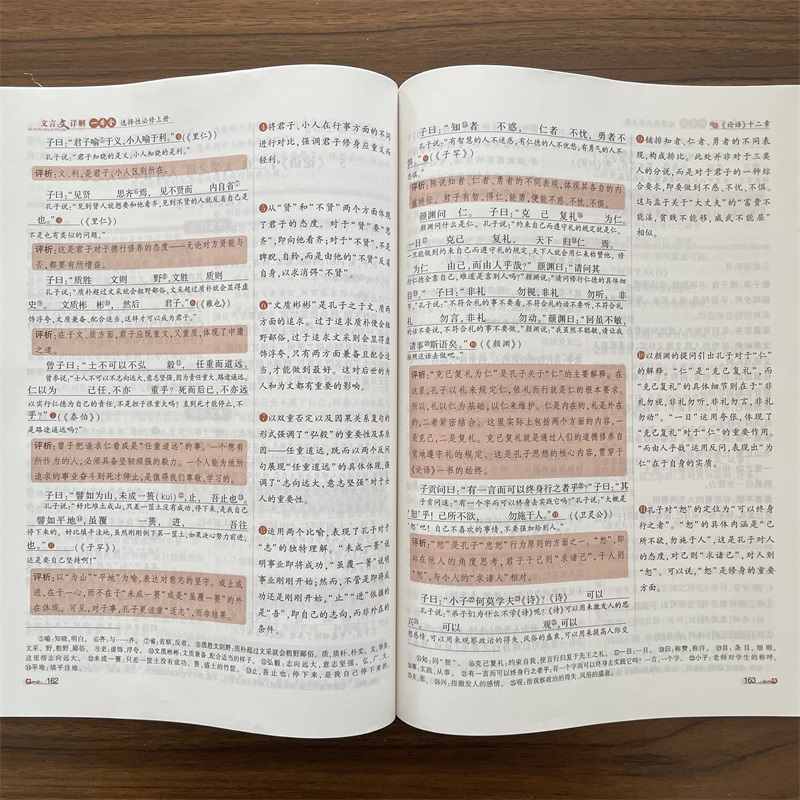 文言文详解一本全 选择性必修上册
子曰：“君子喻⑤于义，小人喻于利。”④（《里仁》）
孔子说：“君子知晓的是义，小人知晓的是利。”
评析：义、利，是君子、小人区别所在。
子曰：“见贤 思齐⑥焉，见不贤而 内自省⑦
孔子说：“见到贤人就想要和他看齐，见到不贤的人就反省自己是
也。”⑤（《里仁》）
不是也有类似的问题。”
评析：这是君子对于德行修养的态度——无论对方贤能与
否，都要有所增益。
子曰：“质胜 文则 野⑧，文胜 质则
孔子说：“质朴超过文采就会粗野鄙俗，文采超过质朴就会显得虚
史⑨。 文质彬 彬⑩，然后 君子。”⑥（《雍也》）
饰浮夸，文质兼备、配合适当，这样才可以成为君子。”
评析：在于文、质方面，君子应既重文，又重质，体现了中庸
之道。
曾子曰：“士不可以不弘 毅⑪，任重而道远。
曾参说：“士人不可以不志向远大、意志坚强，因为责任重大，路途遥远。
仁以为 己任，不亦 重乎？死而后已，不亦远
以实行仁德为自己的责任，不是担子很重大吗？直到死才能停止，不
乎？”⑦（《泰伯》）
是路途遥远吗？”
评析：曾子把追求仁看成是“任重道远”的事。一个想有
所作为的人，必须具备坚韧顽强的毅力。一个人能为他所
追求的事业奋斗到死才停止，是值得我们尊敬、学习的。
子曰：“譬如为山，未成一篑（kuì）⑫，止，吾止也⑬。
孔子说：“好比堆土成山，只差一筐土没有成功，停下来，是我自己
譬如平地⑭，虽覆 一篑，进， 吾往
停下来的。好比填平洼地，虽然刚刚倒下第一筐土，如果决心努力前进，
也。”⑧（《子罕》）
还是要自己坚持啊！”
评析：以“为山”“平地”为喻，表达对意志的坚守。或止或
进，在于一心，而不在于“未成一篑”或是“虽覆一篑”的外
在体现。可见，对于事，孔子更注重“适志”，而非结果。
④将君子、小人在行事方面的不同
进行对比，强调君子修身应重义而
轻利。
⑤从“贤”和“不贤”两个方面体现
了君子的态度。对于“贤”要“思
齐”，即向他看齐；对于“不贤”，不是
睥睨、自矜，而是由他的“不贤”反省
自身，以求消弭“不贤”。
⑥“文质彬彬”是孔子之于文、质两
方面的追求。过于追求质朴便会粗
野鄙俗，过于追求文采则会显得虚
饰浮夸，只有两方面兼备且配合适
当，才能做到最好。这对后世的为
人和为文都有重要的影响。
⑦以双重否定以及因果关系复句的
形式强调了“弘毅”的重要性及其原
因——任重道远，既而以两个反问
句展现“任重道远”的具体体现，强
调了“志向远大，意志坚强”对于士
人的重要性。
⑧运用两个比喻，表现了孔子对于
“志”的独特理解。“未成一篑”说
明事业即将成功，“虽覆一篑”说明
事业刚刚开始；然而，不管是即将成
功还是刚刚开始，“止”“进”依循的
是“吾”，即自己的志向，而非外在的
条件。
162
《论语》十二章
子曰：“知⑮者 不惑， 仁者 不忧，勇者不
孔子说：“有智慧的人不迷惑，有仁德的人不忧愁，有勇气的人不
⑨（《子罕》）
评析：陈说知者、仁者、勇者的不同表现，体现其各自的内
君子有智，得仁，能勇，便能不惑、不忧、不惧。
颜渊问 仁。子曰：“克 己 复礼⑯ 为仁。
颜渊问什么是仁。孔子说：“约束自己而遵守礼的规定就是仁。
一日⑰ 克己 复礼， 天下 归⑱仁 焉。
为仁 由己，而由人乎哉？”颜渊曰：“请问其
目⑲。”子曰：“非礼 勿视，非礼 勿听， 非
礼 勿言，非礼 勿动。”颜渊曰：“回虽不敏，
请事⑳斯语矣。”⑩（《颜渊》）
按照这话去做吧。”
评析：“克己复礼为仁”是孔子关于“仁”的主要解释。在
这里，孔子以礼来规定仁，依礼而行就是仁的根本要求，
所以，礼以仁为基础，以仁来维护。仁是内在的，礼是外在
的，二者紧密结合。这里实际上包括两个方面的内容，一
是克己，二是复礼。克己复礼就是通过人们的道德修养自
觉地遵守礼的规定。这是孔子思想的核心内容，贯穿于
《论语》一书的始终。
子贡问曰：“有一言而可以终身行之者乎㉑？”子曰：“其
‘恕’乎！己所不欲， 勿施于人。”⑪（《卫灵公》）
‘恕’吧！自己不喜欢的事情，不要强加给别人。”
评析：“恕”是孔子“忠恕”行为原则的方面之一。“恕”，即
站在他人的角度思考，君子于己则“求诸己”，于人则
“恕”，与小人的“求诸人”相对。
子曰：“小子㉒何莫学夫㉓《诗》？《诗》 可以
孔子说：“弟子们为什么不学《诗》呢？《诗》可以用来激发人的思
兴㉔， 可以 观㉕，可以
想感情，可以用来观察政治的得失、风俗的盛衰，可以用来提高人际交
⑨铺排知者、仁者、勇者的不同表
现，构成排比。此处并非对于三类
人的分说，而是对于君子的一种综
合要求，即要做到不惑、不忧、不惧。
这与孟子关于“大丈夫”的“富贵不
能淫，贫贱不能移，威武不能屈”
相似。
⑩以颜渊的提问引出孔子对于“仁”
的解释。“仁”是“克己复礼”，而
“克己复礼”的具体细节则在于“非
礼勿视，非礼勿听，非礼勿言，非礼
勿动”。“一日”运用夸张，体现了
“克己复礼”对于“仁”的重要作用。
“而由人乎哉”运用反问，表现出“为
仁”在于自身的实质。
⑪孔子对“恕”的定位为“可以终身
行之者”。“恕”的具体内涵是“己
所不欲，勿施于人”，这是孔子对人
的态度，对己则“求诸己”，对人则
“恕”，可以说，“恕”是修身的重要
方面。
163